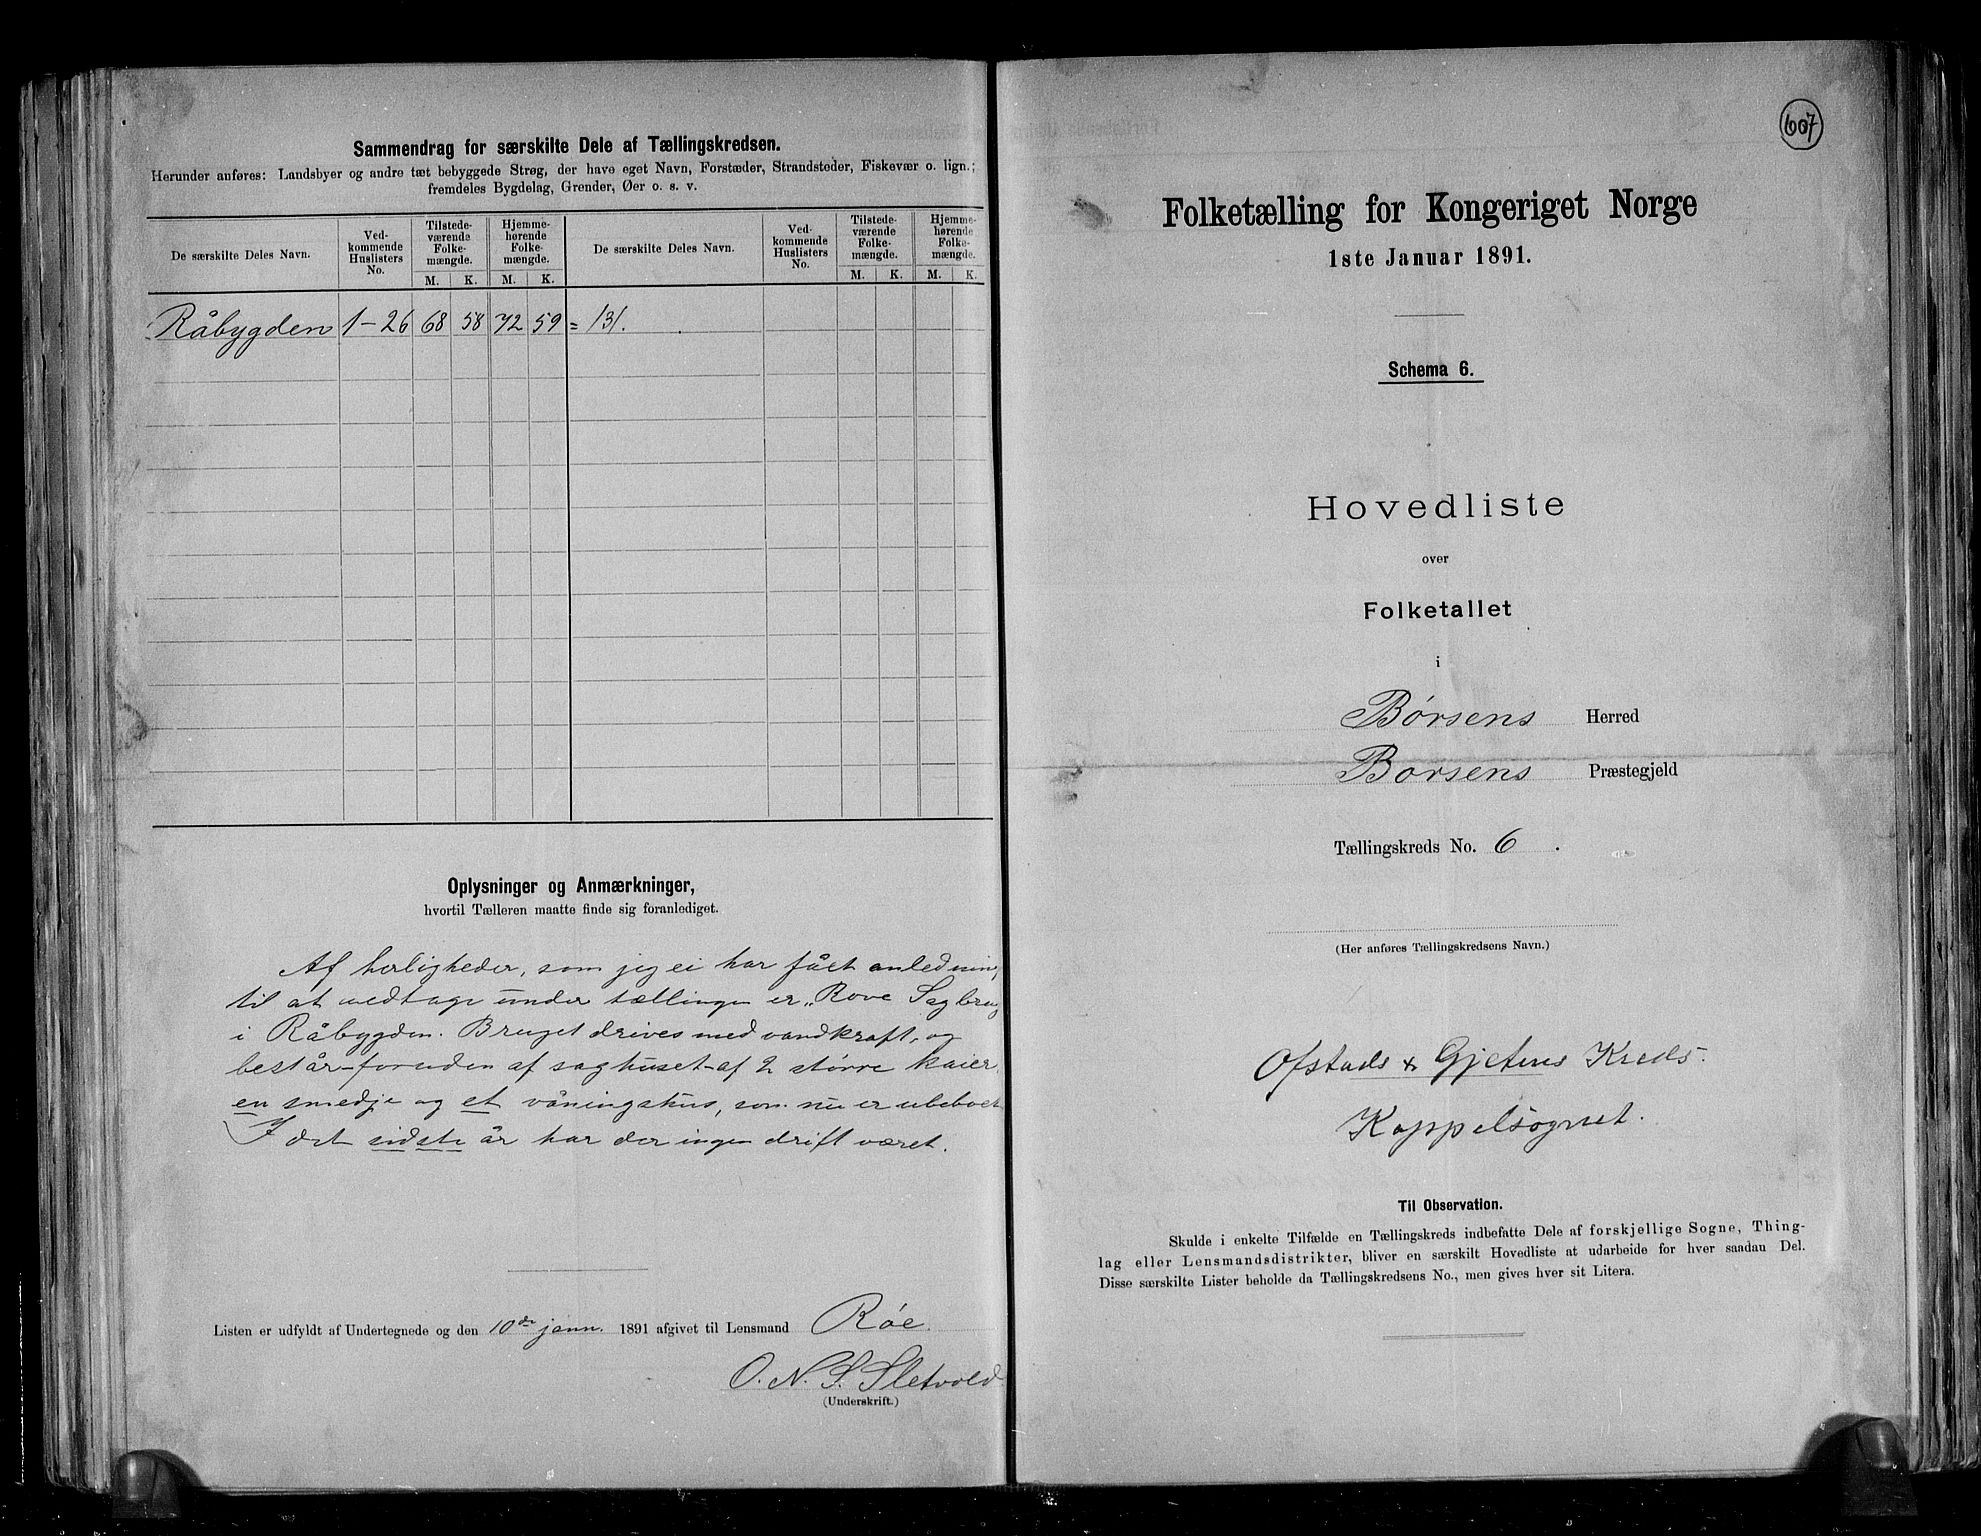 Sammendrag for særskilte Dele af Tællingskredsen.
Herunder anføres: Landsbyer og andre tæt bebyggede Strøg, der have eget Navn, Forstæder, Strandsteder, Fiskevær o. lign.;
fremdeles Bygdelag, Grender, Øer o. s. v.
De særskilte Deles Navn.
Ved-
kommende
Huslisters
No.
Tilstede-
værende
Folke-
mængde.
Hjemme-
hørende
Folke-
mængde.
De særskilte Deles Navn.
Ved-
kommende
Huslisters
No.
Tilstede-
værende
Folke-
mængde.
Hjemme-
hørende
Folke-
mængde.
M. K. M. K. M. K. M. K.
Råbygden 1-26 68 58 72 59 = 131.
Oplysninger og Anmærkninger,
hvortil Tælleren maatte finde sig foranlediget.
Af herligheder, som jeg ei har fået anlednin
til at medtage under tællingen er „Rove Sagbru
i Råbygden. Bruget drives med vandkraft, og
består foruden af saghuset af 2 større kaier
en smedje og et våningshus, som nu er ubeboet
I det sidste år har der ingen drift været.
Listen er udfyldt af Undertegnede og den 10de jann. 1891 afgivet til Lensmand Røe.
O. N. S. Sletvold
(Underskrift.)
607
Folketælling for Kongeriget Norge
1ste Januar 1891.
Schema 6.
Hovedliste
over
Folketallet
i
Børsens Herred
Børsens Præstegjeld
Tællingskreds No. 6.
(Her anføres Tællingskredsens Navn.)
Ofstads & Gjetens Kreds.
Kappelsognet.
Til Observation.
Skulde i enkelte Tilfælde en Tællingskreds indbefatte Dele af forskjellige Sogne, Thing-
lag eller Lensmandsdistrikter, bliver en særskilt Hovedliste at udarbeide for hver saadan Del.
Disse særskilte Lister beholde da Tællingskredsens No., men gives hver sit Litera.